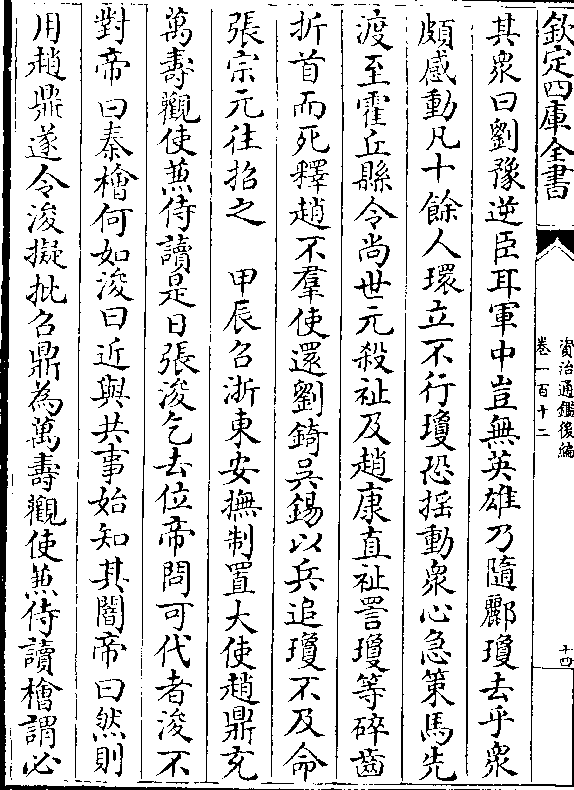 欽定四庫全書
資治通鑑後編
卷一百十二
十四
其衆曰劉豫逆臣耳軍中豈無英雄乃隨酈瓊去乎衆
頗感動凡十餘人環立不行瓊恐揺動衆心急策馬先
渡至霍丘縣令尚世元殺祉及趙康直祉罵瓊等碎齒
折首而死釋趙不羣使還劉錡吳錫以兵追瓊不及命
張宗元往招之　甲辰召浙東安撫制置大使趙鼎充
萬壽觀使兼侍讀是日張浚乞去位帝問可代者浚不
對帝曰秦檜何如浚曰近與共事始知其闇帝曰然則
用趙鼎遂令浚擬批召鼎為萬壽觀使兼侍讀檜謂必